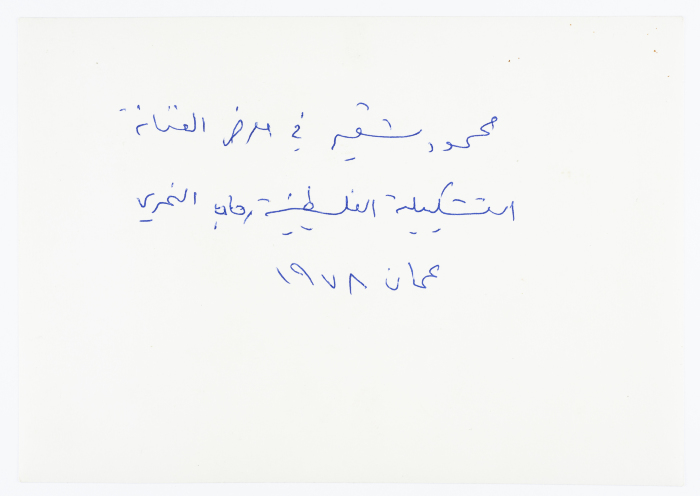 محمود شقير في معرض الفنانة
التشكيلية الفلسطينية رحاب النمري
عمان ١٩٧٨